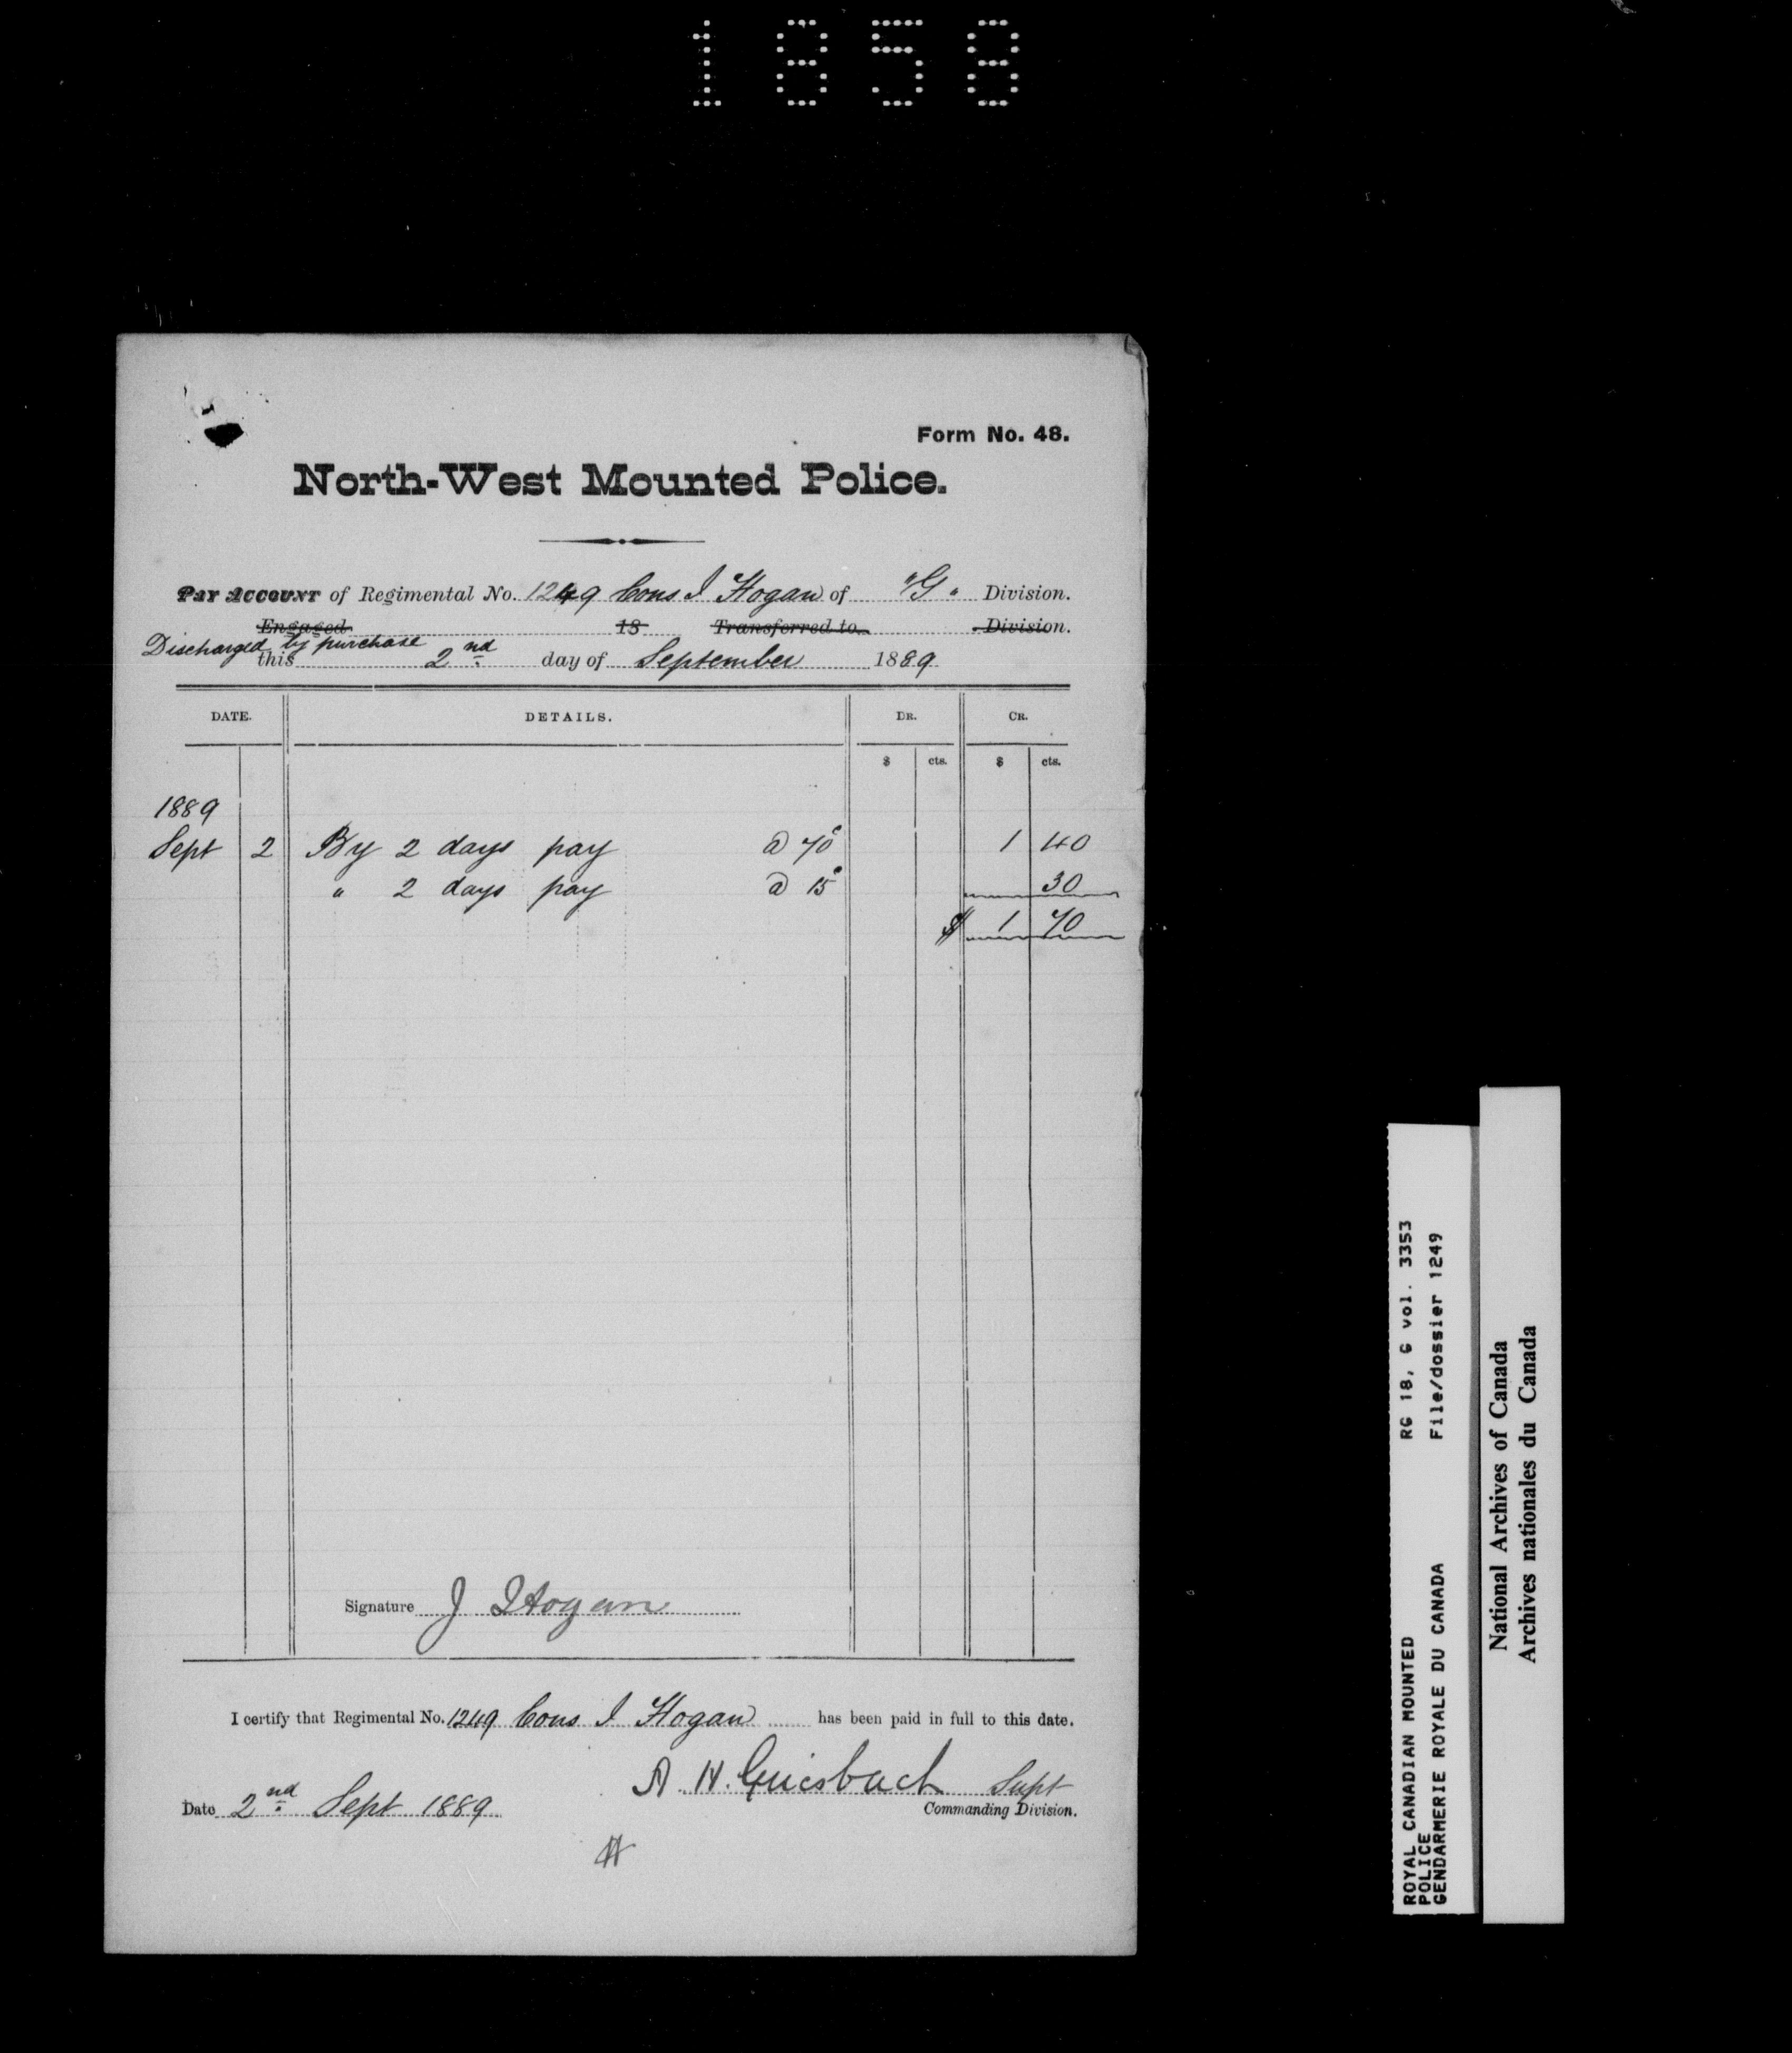 1858
Form No. 48.
North-West Mounted Police.
Pay Account of Regimental No. 1249 Cons J Hogan of "G" Division.
Engaged 18 Transferred to Division.
Discharged by purchase
this 2nd day of September 1889
DATE. DETAILS. DR. CR.
$ cts. $ cts.
1889
Sept 2 By 2 days pay @ 70c 1 40
" 2 days pay @ 15c 30
$ 1 70
Signature J Hogan
I certify that Regimental No. 1249 Cons J Hogan has been paid in full to this date.
A. H. Griesbach Supt
Date 2nd Sept 1889 Commanding Division.
ROYAL CANADIAN MOUNTED RG 18, G vol. 3353
POLICE
GENDARMERIE ROYALE DU CANADA File/dossier 1249
National Archives of Canada
Archives nationales du Canada